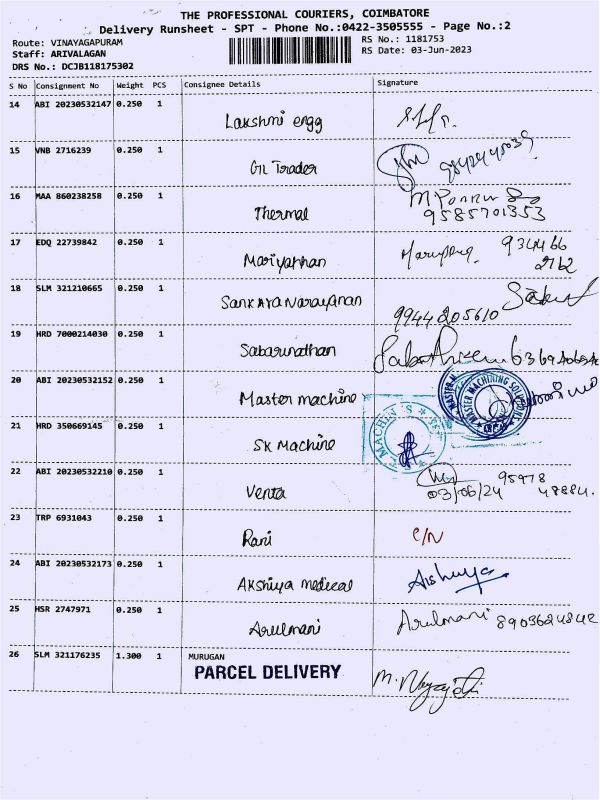 THE PROFESSIONAL COURIERS, COIMBATORE
Delivery Runsheet - SPT - Phone No.:0422-3505555 - Page No.:2
Route: VINAYAGAPURAM
RS No.: 1181753
Staff: ARIVALAGAN
RS Date: 03-Jun-2023
DRS No.: DCJB118175302
S No Consignment No Weight PCS Consignee Details Signature
14 ABI 20230532147 0.250 1 Lakshmi engg
15 VNB 2716239 0.250 1 GL Trader
16 MAA 860238258 0.250 1 Thermal
9585701353
17 EDQ 22739842 0.250 1 Mariyappan
18 SLM 321210665 0.250 1 Sankaranarayanan
9944205610
19 HRD 7000214030 0.250 1 Sabarinathan
20 ABI 20230532152 0.250 1 Master machine
MASTER MACHINING
21 HRD 350669145 0.250 1 SK Machine
22 ABI 20230532210 0.250 1 Venta
03/06/24
23 TRP 6931043 0.250 1 Rani C/N
24 ABI 20230532173 0.250 1 Akshiya medical
25 HSR 2747971 0.250 1 Arulmani Arulmani 8903624842
26 SLM 321176235 1.300 1 MURUGAN
PARCEL DELIVERY